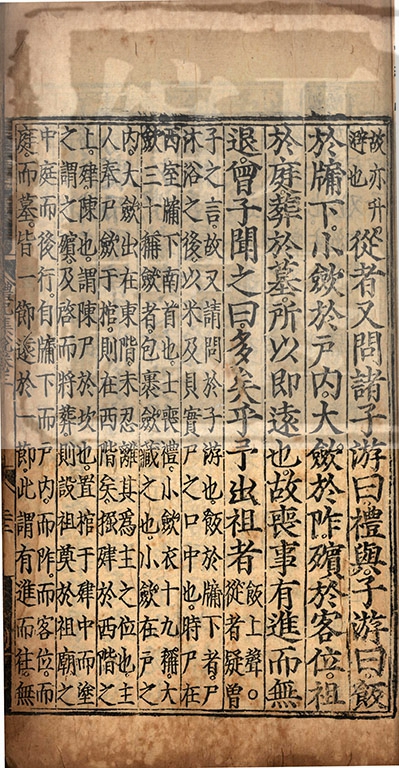 故亦升
避也
從者又問諸子游曰禮與子游曰飯
於牖下小歛於戶内大歛於阼殯於客位祖
於庭葬於墓所以即遠也故喪事有進而無
退曾子聞之曰多矣乎予出祖者
飯上聲。
從者疑曾
子之言故又請問於子游也飯於牖下者尸
沐浴之後以米及貝實尸之口中也時尸在
西室牖下南首也士喪禮小歛衣十九稱大
歛三十稱歛者包裹歛藏之也小歛在戶之
内大歛出在東階未忍離其爲主之位也主
人奉尸歛于棺則在西階矣掘肂於西階之
上肂陳也謂陳尸於坎也置棺于肂中而塗
之謂之殯及啓而將葬則設祖奠於祖廟之
中庭而後行自牖下而戶内而阼而客位而
庭而墓皆一節遠於一節此謂有進而徃無